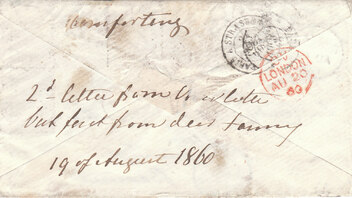 Comforting
STRASB
LONDON
AU 20
60
2d letter from
but first from dear Fanny
19 of August 1860